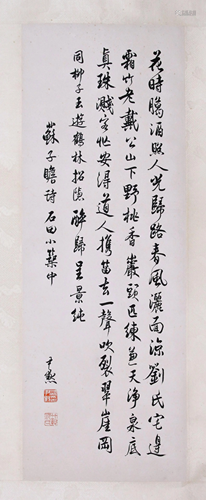 花時臘酒照人光歸路春風灑面涼劉氏宅邊
霜竹老戴公山下野桃香巖頭匹練兼天淨泉底
真珠濺客忙安得道人攜笛去一聲吹裂翠崖岡
同柳子玉遊鶴林招隱醉歸呈景純
蘇子瞻詩 石田小築中
尹默